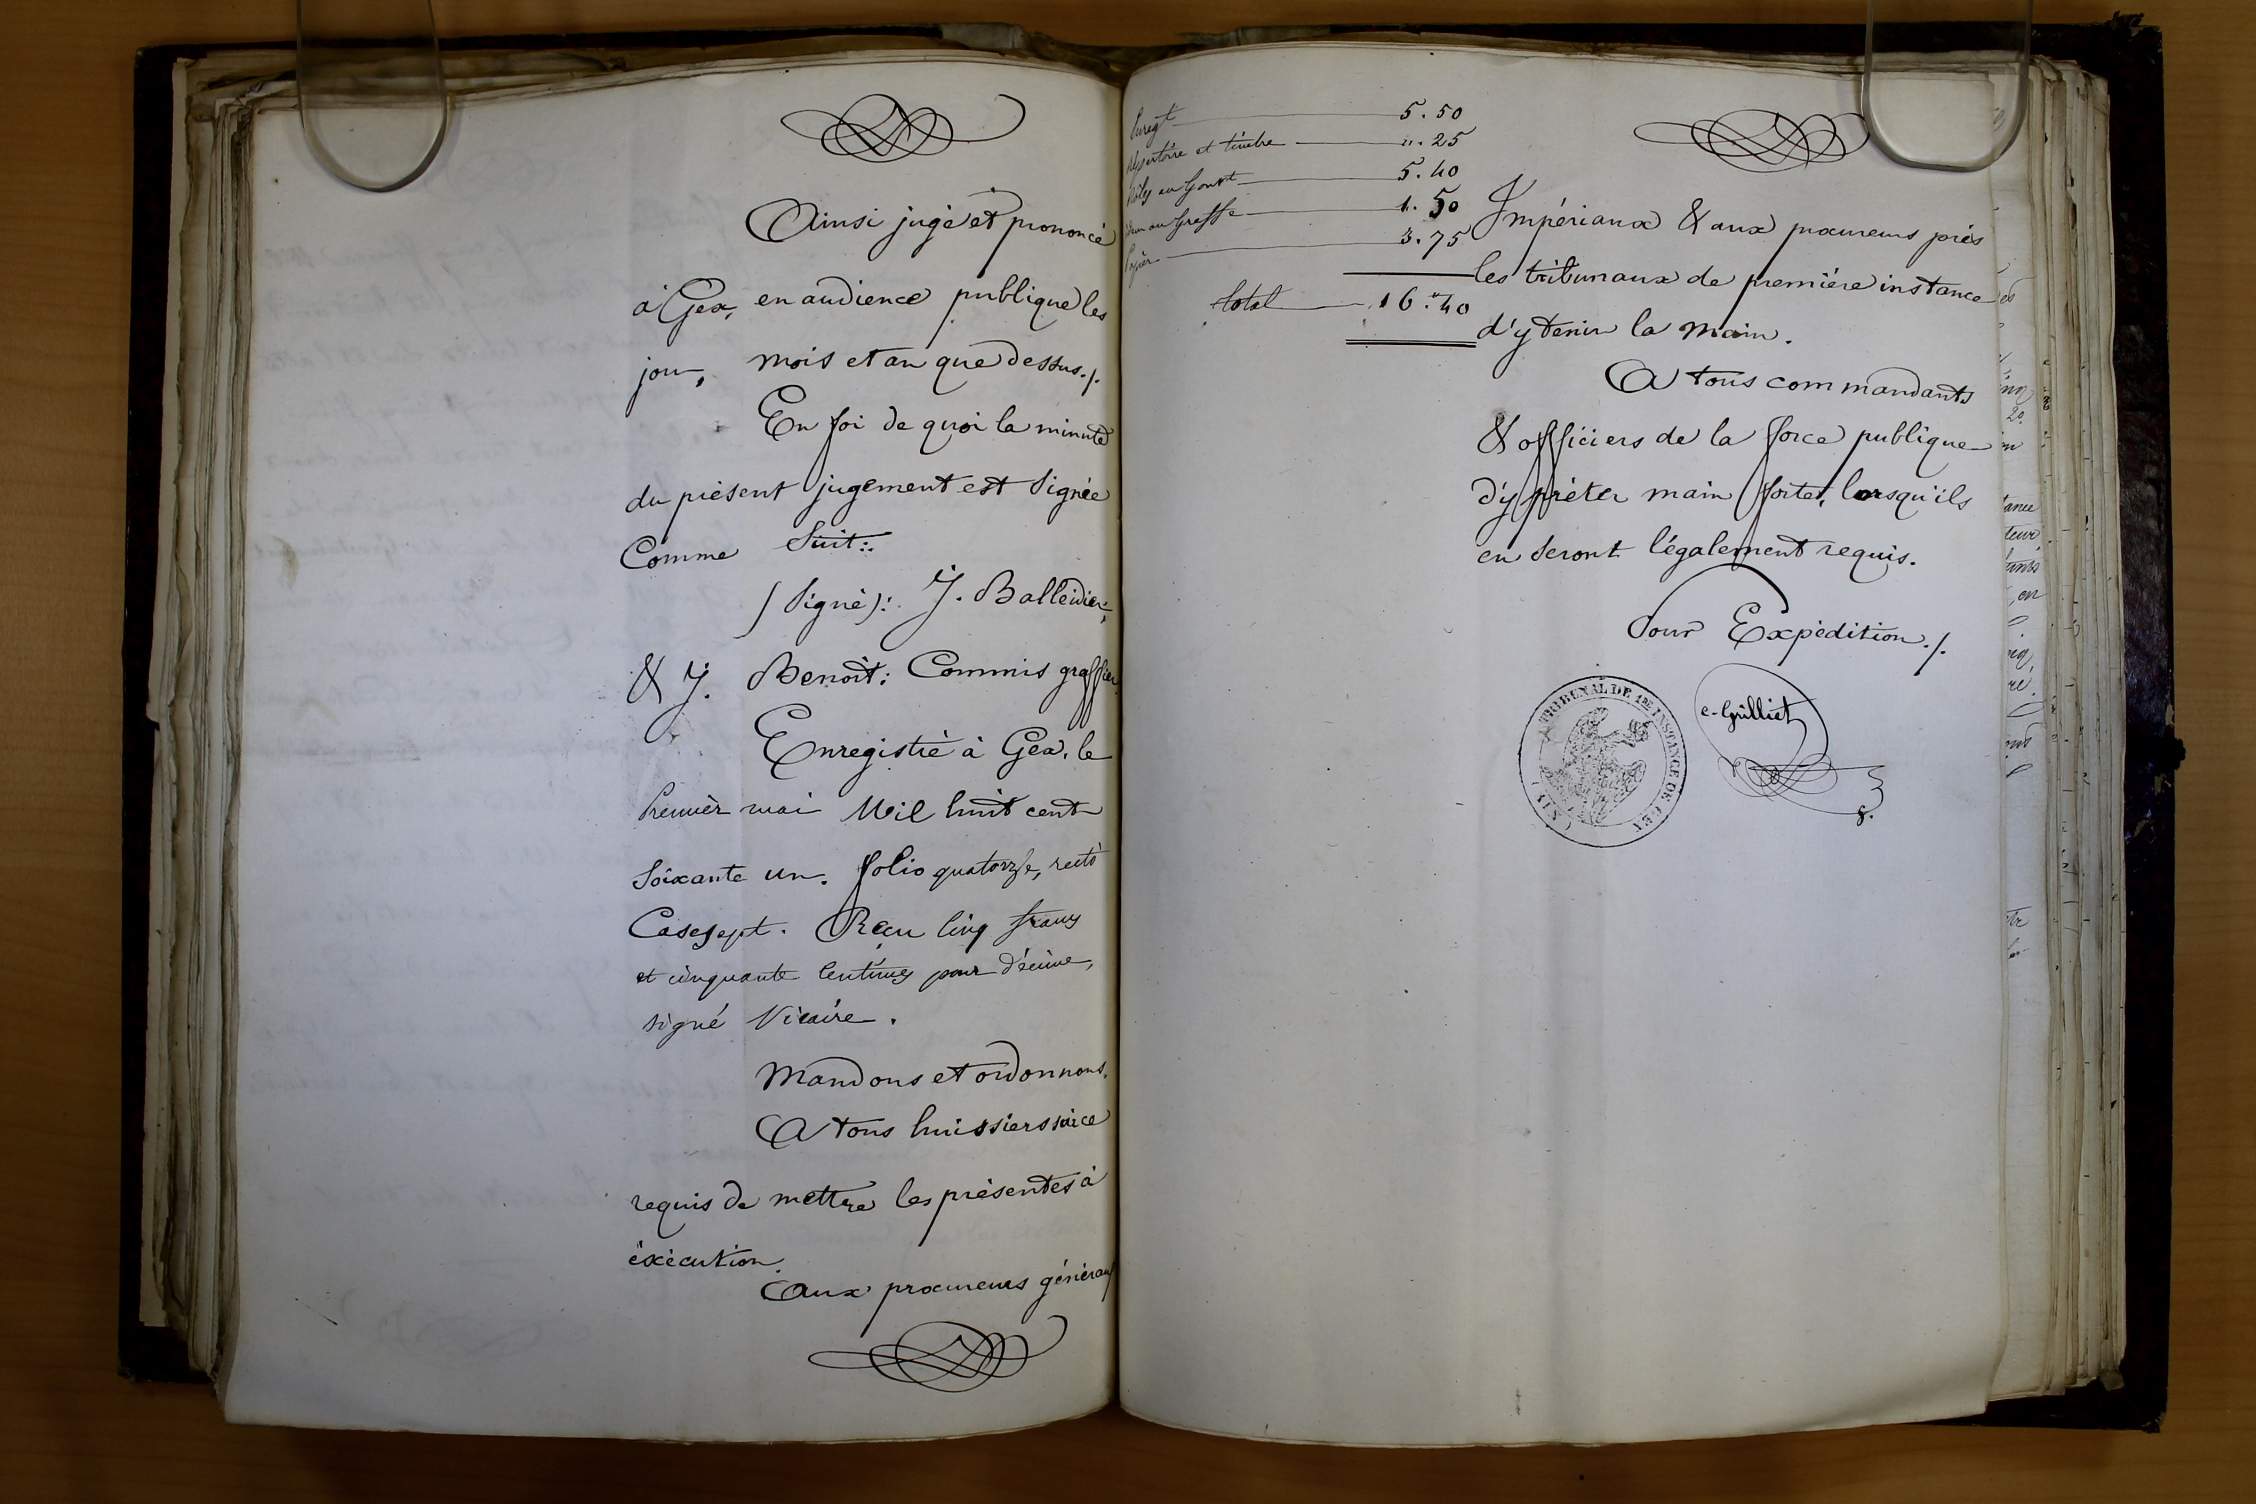 Ainsi jugé et prononcé
à Gex, en audience publique les
jour, mois et an que dessus./.
En foi de quoi la minute
du présent jugement est signée
Comme Suit:
(Signé): J. Balleidier,
& J. Benoit: Commis greffier
Enregistré à Gex, le
Premier mai Mil huit cent
Soixante un. folio quatorze, recto
Case sept. Reçu Cinq francs
et cinquante Centimes pour décime,
signé Vicaire.
Mandons et ordonnons.
A tous huissiers sur ce
requis de mettre les présentes à
éxécution.
Aux procureurs généraux
Enregt 5.50
Répertoire et timbre ". 25
Rôles au Gouvt 5.40
au Greffe 1.50
Papier 3.75
total 16.40
Impériaux & aux procureurs près
les tribunaux de première instance
d'y tenir la main.
A tous commandants
& officiers de la force publique
d'y prêter main forte, lorsqu'ils
en seront légalement requis.
Pour Expédition./.
e. Grilliet
TRIBUNAL DE 1RE INSTANCE DE GEX